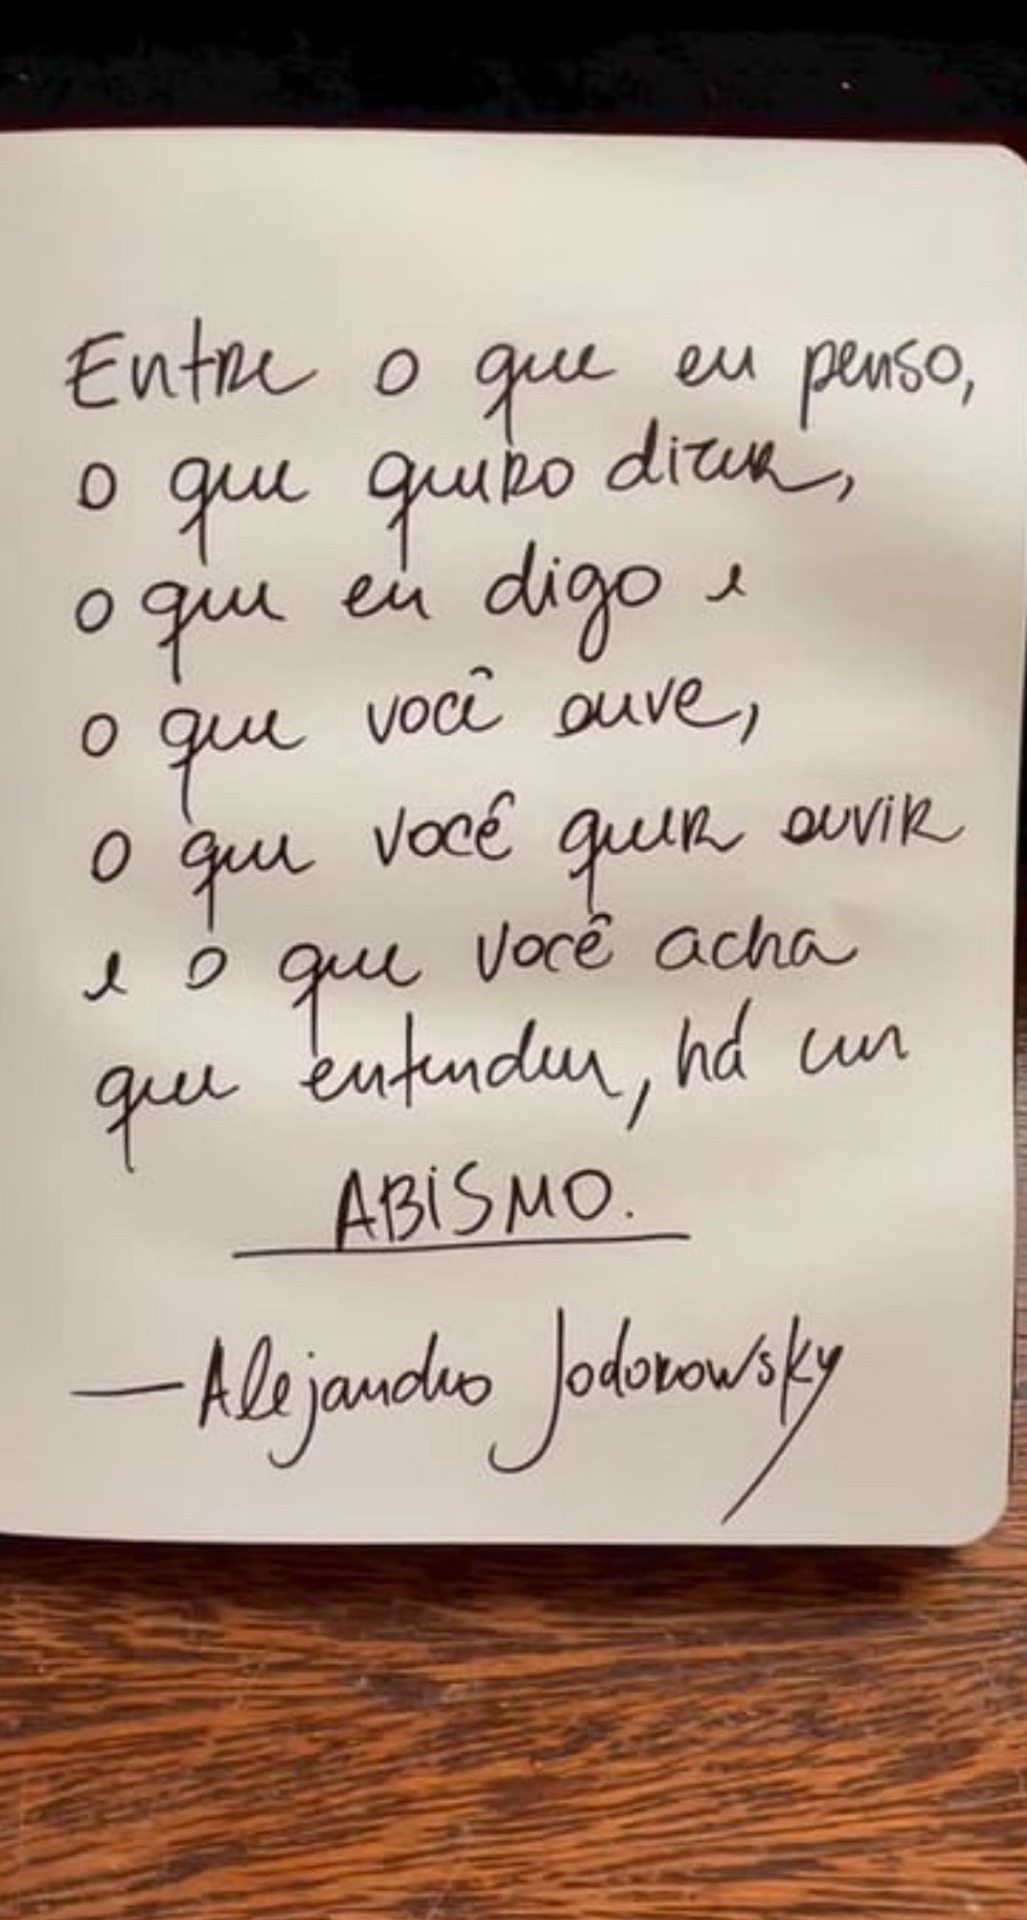 Entre o que eu penso,
o que quero dizer,
o que eu digo e
o que você ouve,
o que você quer ouvir
e o que você acha
que entendeu, há um
ABISMO.
— Alejandro Jodorowsky